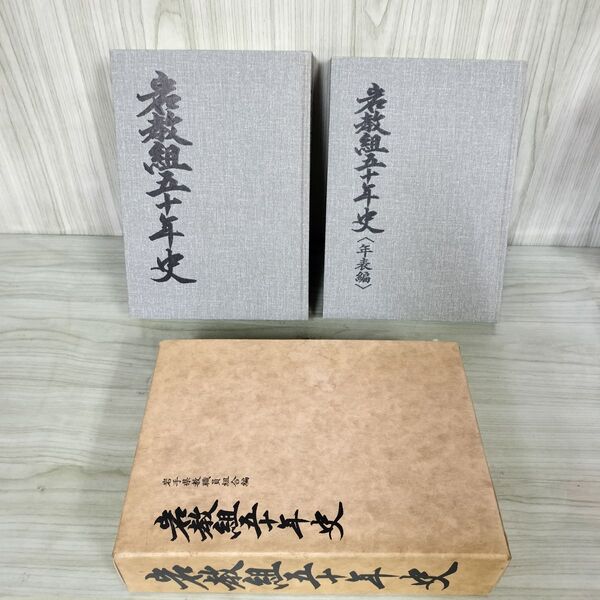 岩教組五十年史
岩教組五十年史
〈年表編〉
岩手県教職員組合編
岩教組五十年史
岩教組五十年史